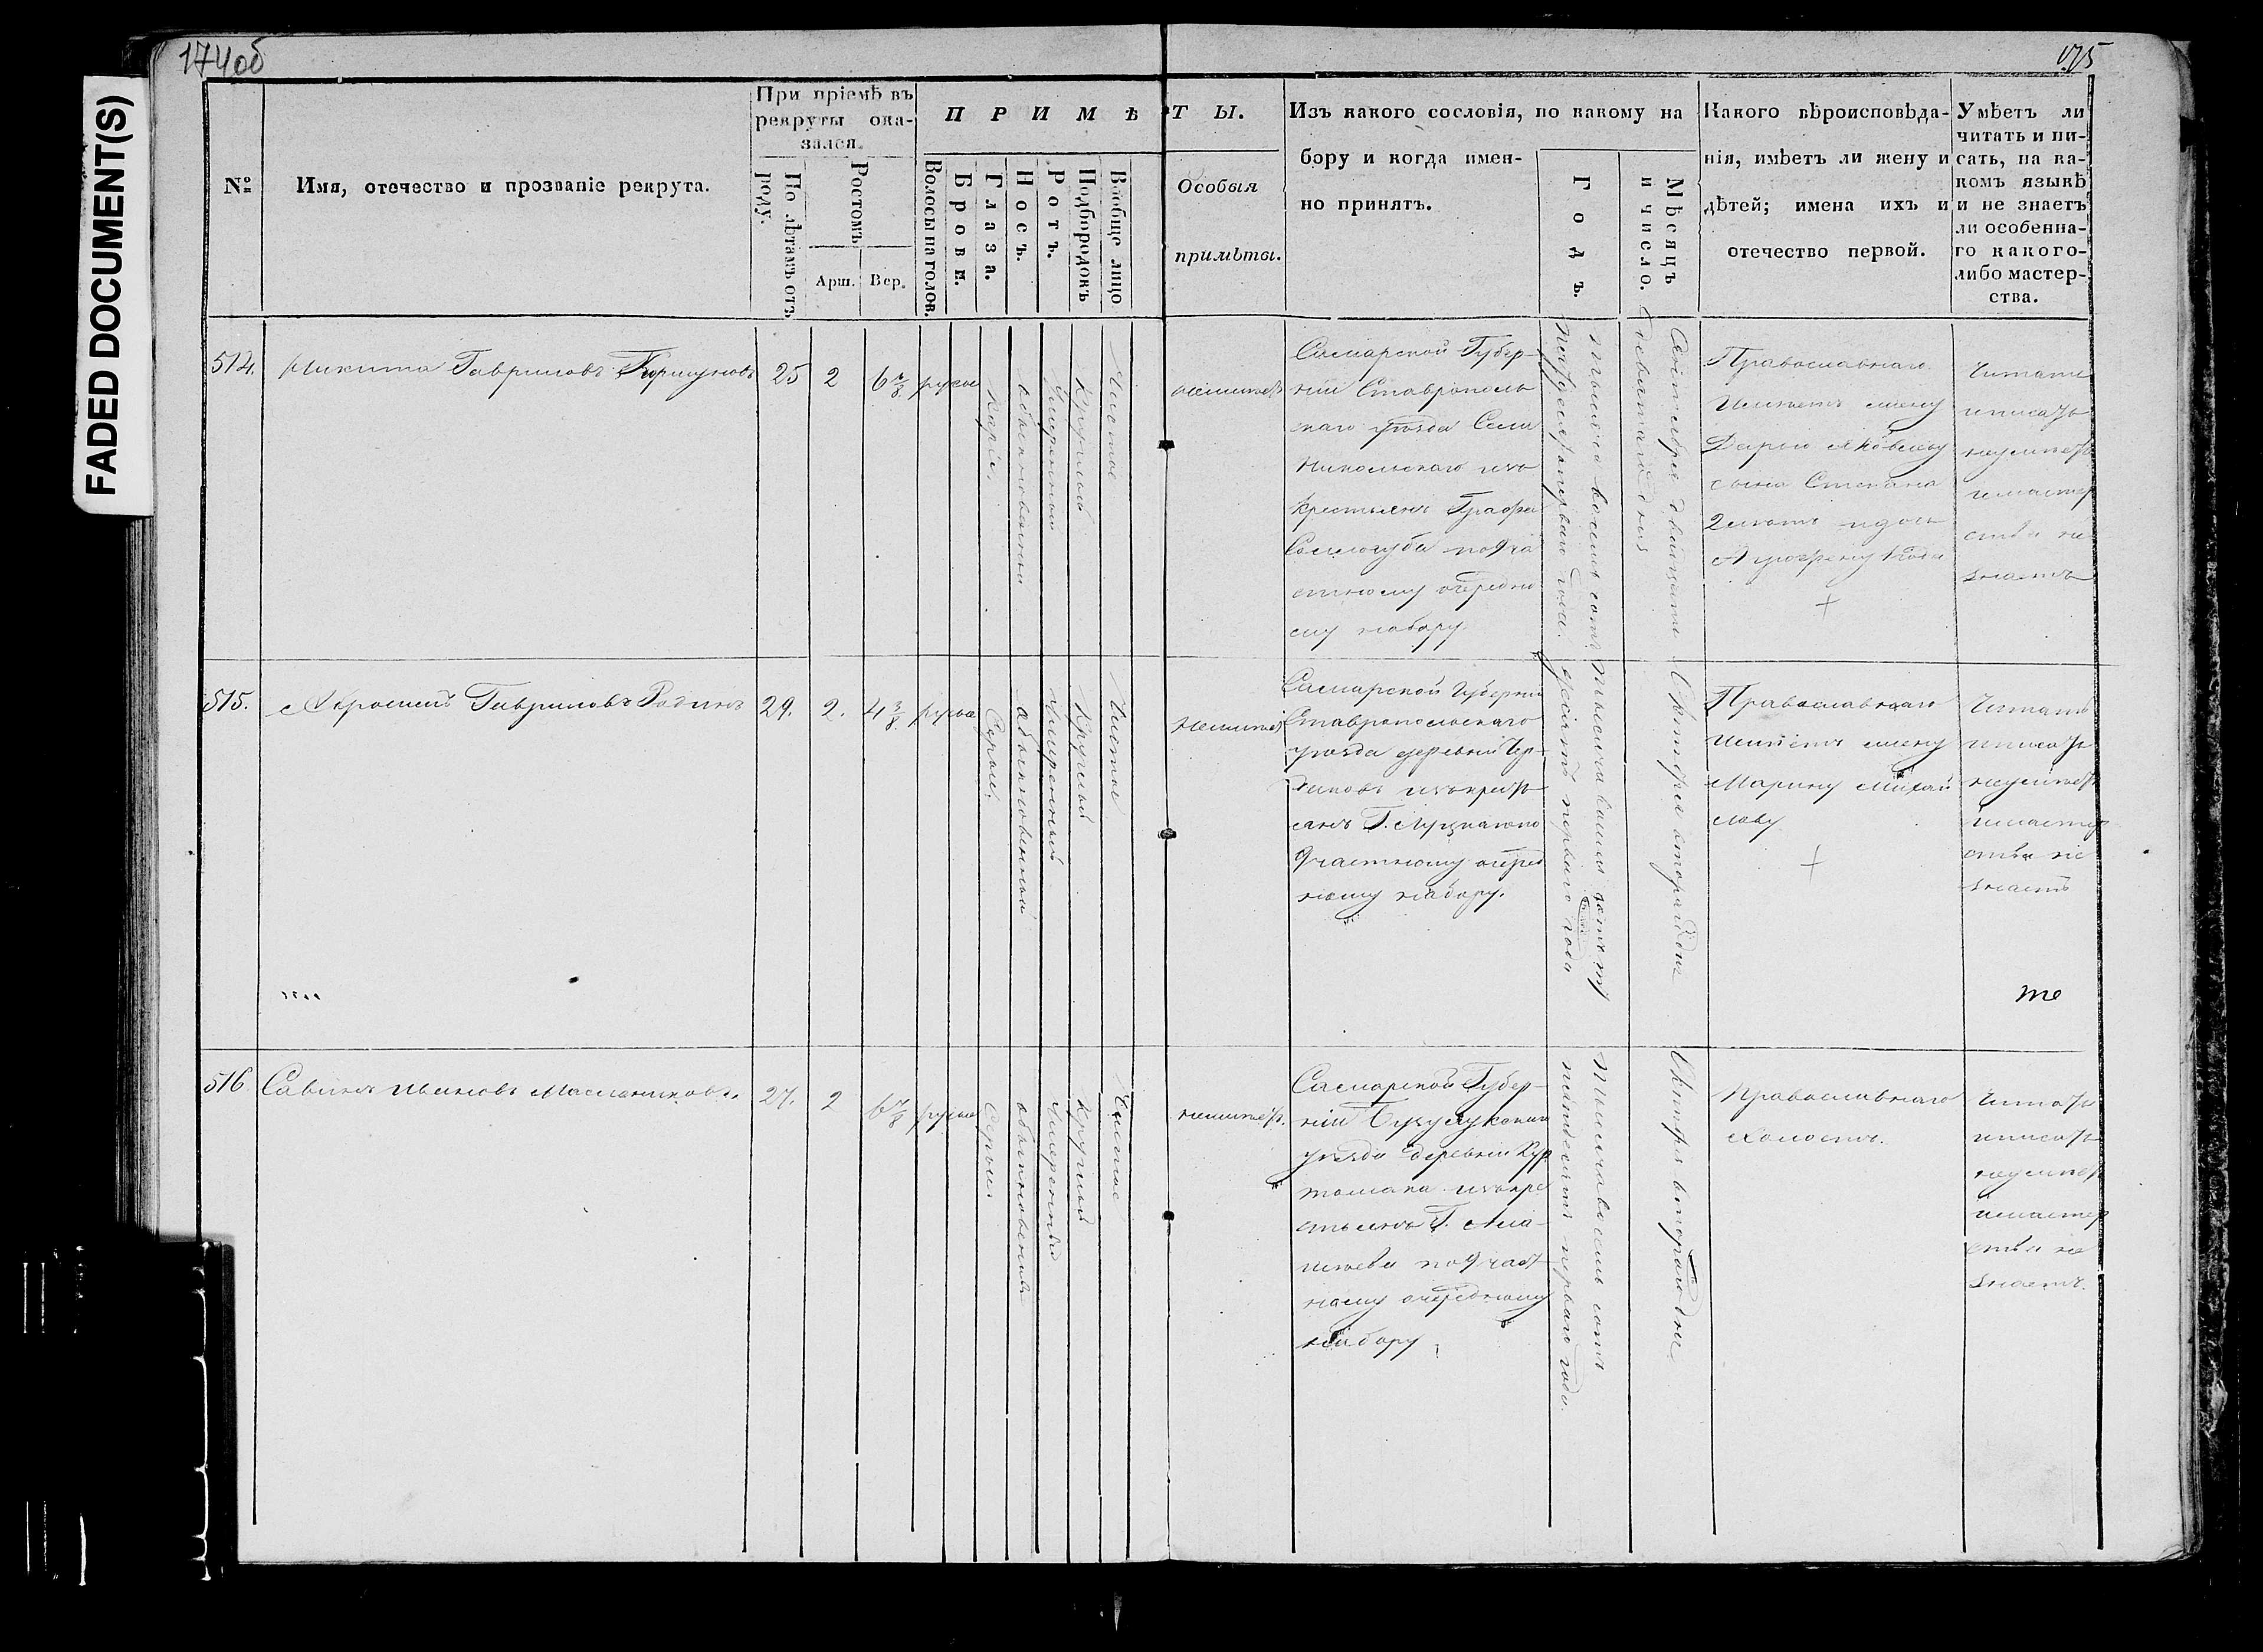 174об
175
FADED DOCUMENT(S)
№
Имя, отечество и прозваніе рекрута.
При пріемѣ въ
рекруты ока-
зался.
По лѣтамъ отъ
роду.
Ростомъ
Арш.
Вер.
ПРИМѢТЫ.
Волосы на голов.
Брови.
Глаза.
Носъ.
Ротъ.
Подбородокъ
Вообще лицо
Особыя
примѣты.
Изъ какого сословія, по какому на
бору и когда имен-
но принятъ.
Годъ.
Мѣсяцъ
и число.
Какого вѣроисповѣда-
нія, имѣетъ ли жену и
дѣтей; имена ихъ и
отечество первой.
Умѣетъ ли
читать и пи-
сать, на ка-
комъ языкѣ
и не знаетъ
ли особенна-
го какого-
либо мастер-
ства.
514.
Никита Гавриловъ
25
2
6
русые
Каріе.
обыкновенный
умеренный
Круглый
Чистое
неимѣетъ
Самарской Губер-
ніи Ставрополь
скаго уѣзда Села
Никольскаго изъ
крестьянъ Графа
Соллогуба по 9 ча
стному очередно
му набору.
тысяча восемь сотъ
пятьдесятъ перваго года.
Сентября двадцать
девятаго дня
Православнаго
Имѣетъ жену
Дарью Яковлеву
сына Степана
2 лѣтъ и дочь
Агрофену 1 года
Читать
и писать
неумѣетъ
и мастер
ства не
знаетъ
515.
Гавриловъ Родинъ
29.
2.
4 3/8
русые
Серые.
обыкновенный
умеренный
Круглый
Чистое
Неимѣетъ
Самарской Губерніи
Ставропольскаго
уѣзда деревни
изъ кресть
янъ Г.
9 частному очеред
ному набору.
тысяча восемь сотъ пять
десятъ перваго года
Октября втораго дня
Православнаго
Имѣетъ жену
Марину Михай
лову
Читать
и писать
неумѣетъ
и мастер
ства не
знаетъ
то
516.
Савинъ Ивановъ Масленниковъ.
27.
2
6 7/8
русые
Серые.
обыкновенный
умеренный
Круглый
Чистое
неимѣетъ.
Самарской Губер-
ніи Бузулукскаго
уѣзда деревни Кур
томака изъ кре
стьянъ Г.
по 9 част
ному очередному
набору
тысяча восемь сотъ
пятьдесятъ перваго года.
Октября втораго дня
Православнаго
Холостъ.
Читать
и писать
неумѣетъ
и мастер
ства не
знаетъ.